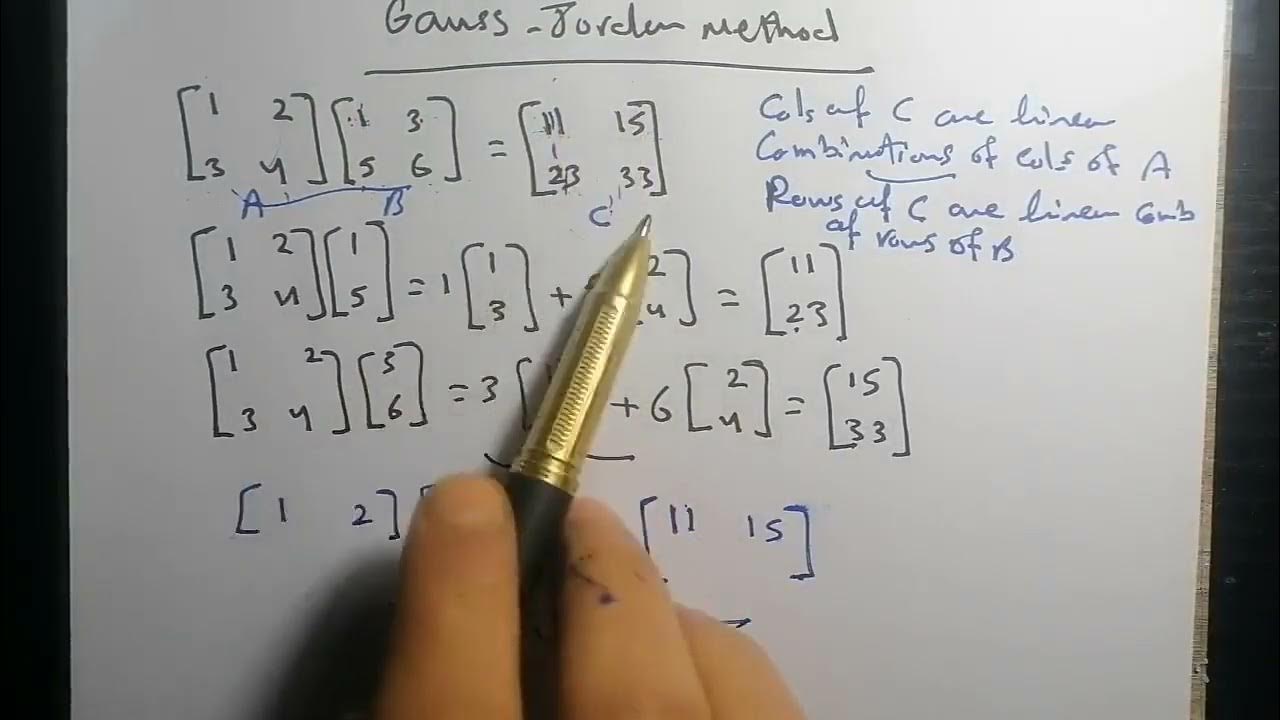 Gauss-Jorden method
[1 2
3 4] [1 3
5 6] = [11 15
23 33]
A B C
Cols of C are linear
Combinations of cols of A
Rows of C are linear Comb
of rows of B
[1 2
3 4] [1
5] = 1 [1
3] + [2
4] = [11
23]
[1 2
3 4] [3
6] = 3 [ ] + 6 [2
4] = [15
33]
[1 2] [ [11 15]